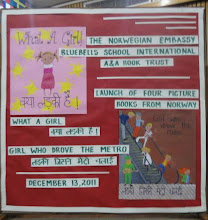 What A Girl!
क्या लड़की है !
THE NORWEGIAN EMBASSY
BLUEBELLS SCHOOL INTERNATIONAL
A&A BOOK TRUST
LAUNCH OF FOUR PICTURE
BOOKS FROM NORWAY
WHAT A GIRL
क्या लड़की है !
GIRL WHO DROVE THE METRO
लड़की जिसने मेट्रो चलाई
DECEMBER 13, 2011
Girl who
drove the